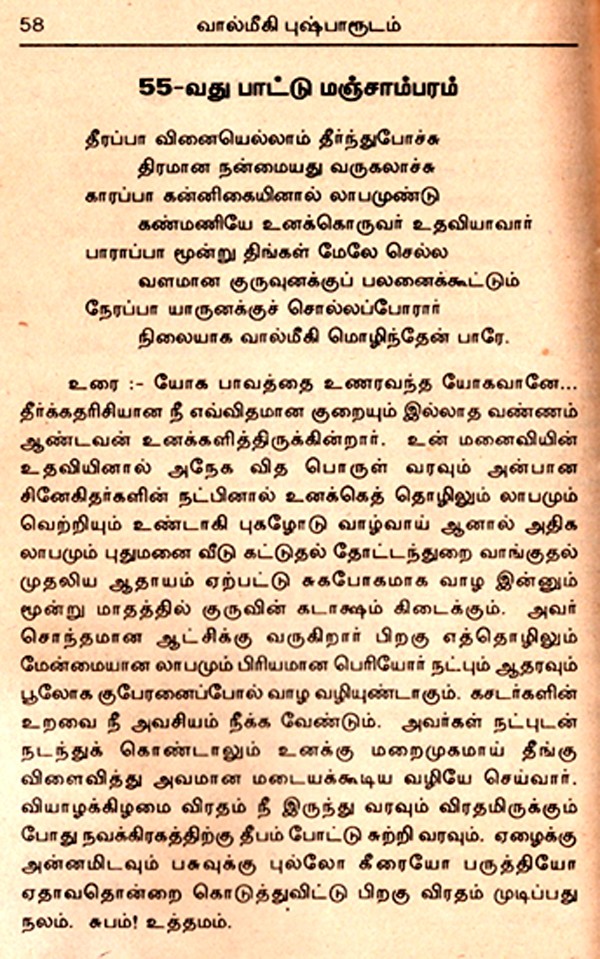 58 வால்மீகி புஷ்பாரூடம்
55-வது பாட்டு மஞ்சாம்பரம்
தீரப்பா வினையெல்லாம் தீர்ந்துபோச்சு
திரமான நன்மையது வருகலாச்சு
காரப்பா கன்னிகையினால் லாபமுண்டு
கண்மணியே உனக்கொருவர் உதவியாவார்
பாராப்பா மூன்று திங்கள் மேலே செல்ல
வளமான குருவுனக்குப் பலனைக்கூட்டும்
நேரப்பா யாருனக்குச் சொல்லப்போரார்
நிலையாக வால்மீகி மொழிந்தேன் பாரே.
உரை :- யோக பாவத்தை உணரவந்த யோகவானே...
தீர்க்கதரிசியான நீ எவ்விதமான குறையும் இல்லாத வண்ணம்
ஆண்டவன் உனக்களித்திருக்கின்றார். உன் மனைவியின்
உதவியினால் அநேக வித பொருள் வரவும் அன்பான
சினேகிதர்களின் நட்பினால் உனக்கெத் தொழிலும் லாபமும்
வெற்றியும் உண்டாகி புகழோடு வாழ்வாய் ஆனால் அதிக
லாபமும் புதுமனை வீடு கட்டுதல் தோட்டந்துறை வாங்குதல்
முதலிய ஆதாயம் ஏற்பட்டு சுகபோகமாக வாழ இன்னும்
மூன்று மாதத்தில் குருவின் கடாக்ஷம் கிடைக்கும். அவர்
சொந்தமான ஆட்சிக்கு வருகிறார் பிறகு எத்தொழிலும்
மேன்மையான லாபமும் பிரியமான பெரியோர் நட்பும் ஆதரவும்
பூலோக குபேரனைப்போல் வாழ வழியுண்டாகும். கசடர்களின்
உறவை நீ அவசியம் நீக்க வேண்டும். அவர்கள் நட்புடன்
நடந்துக் கொண்டாலும் உனக்கு மறைமுகமாய் தீங்கு
விளைவித்து அவமான மடையக்கூடிய வழியே செய்வார்.
வியாழக்கிழமை விரதம் நீ இருந்து வரவும் விரதமிருக்கும்
போது நவக்கிரகத்திற்கு தீபம் போட்டு சுற்றி வரவும். ஏழைக்கு
அன்னமிடவும் பசுவுக்கு புல்லோ கீரையோ பருத்தியோ
ஏதாவதொன்றை கொடுத்துவிட்டு பிறகு விரதம் முடிப்பது
நலம். சுபம்! உத்தமம்.